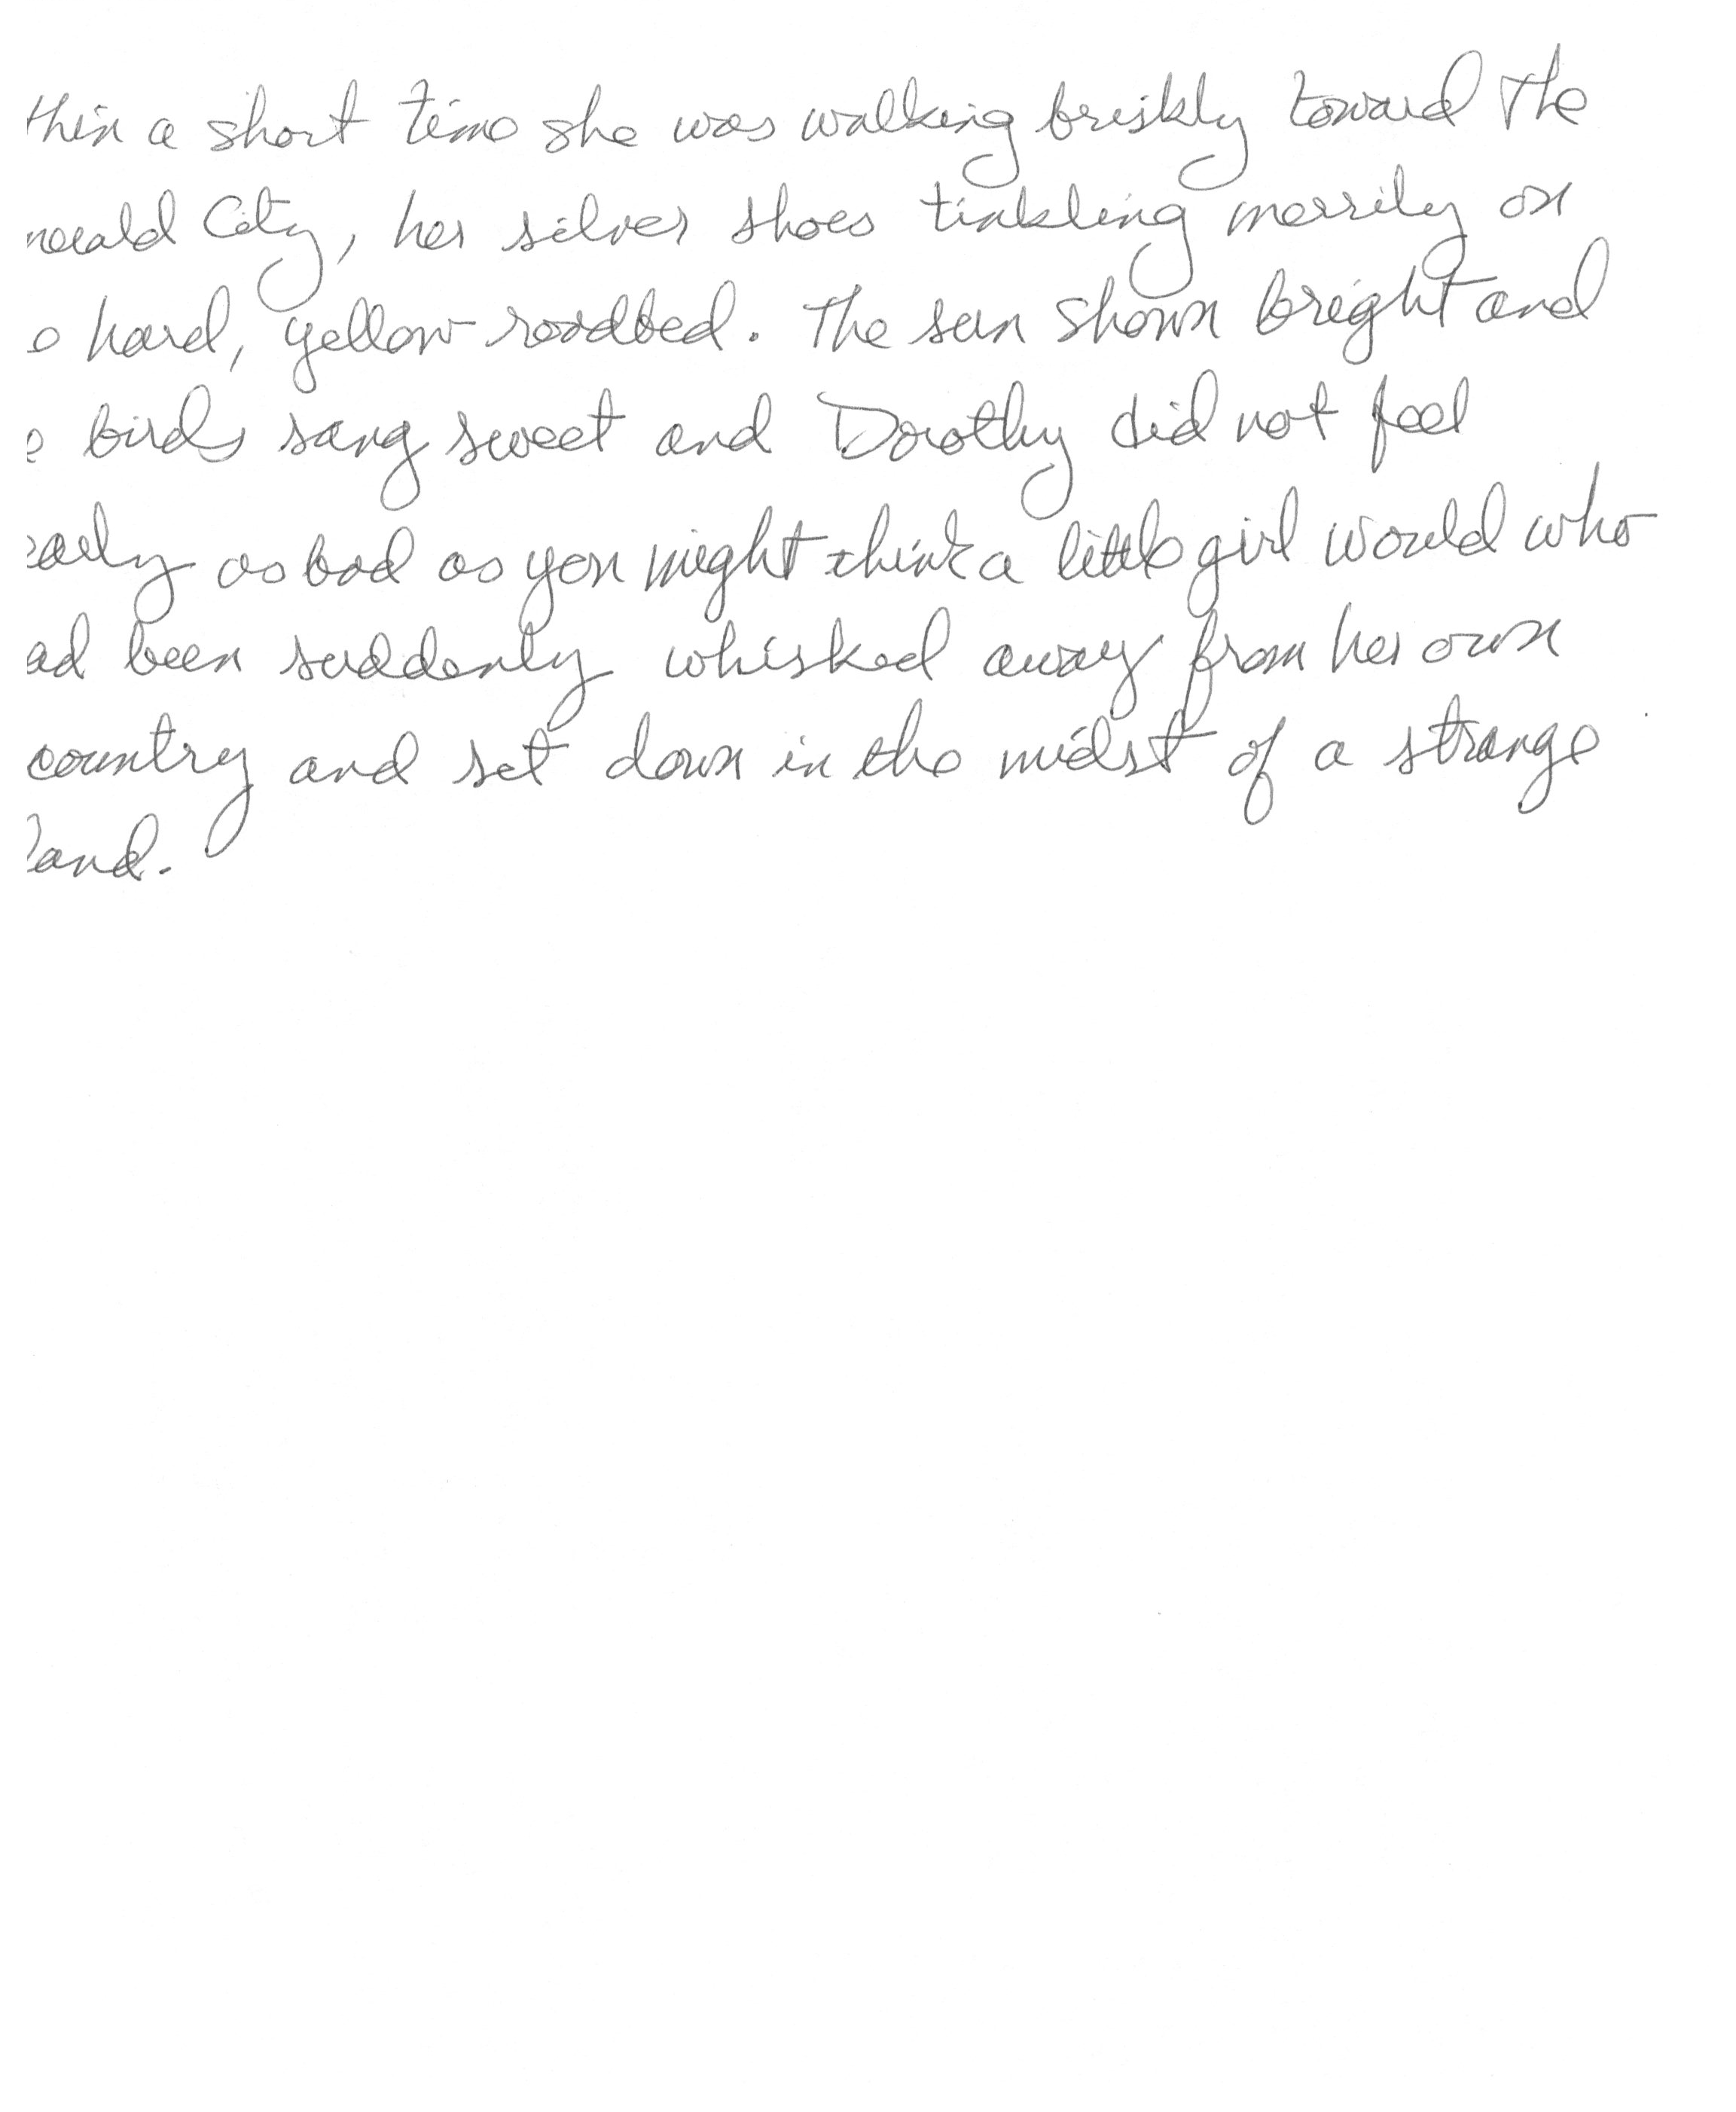 thin a short time she was walking briskly toward the
merald City, her silver shoes tinkling merrily on
e hard, yellow roadbed. The sun shown bright and
e birds sang sweet and Dorothy did not feel
early as bad as you might think a little girl would who
ad been suddenly whisked away from her own
country and set down in the midst of a strange
land.